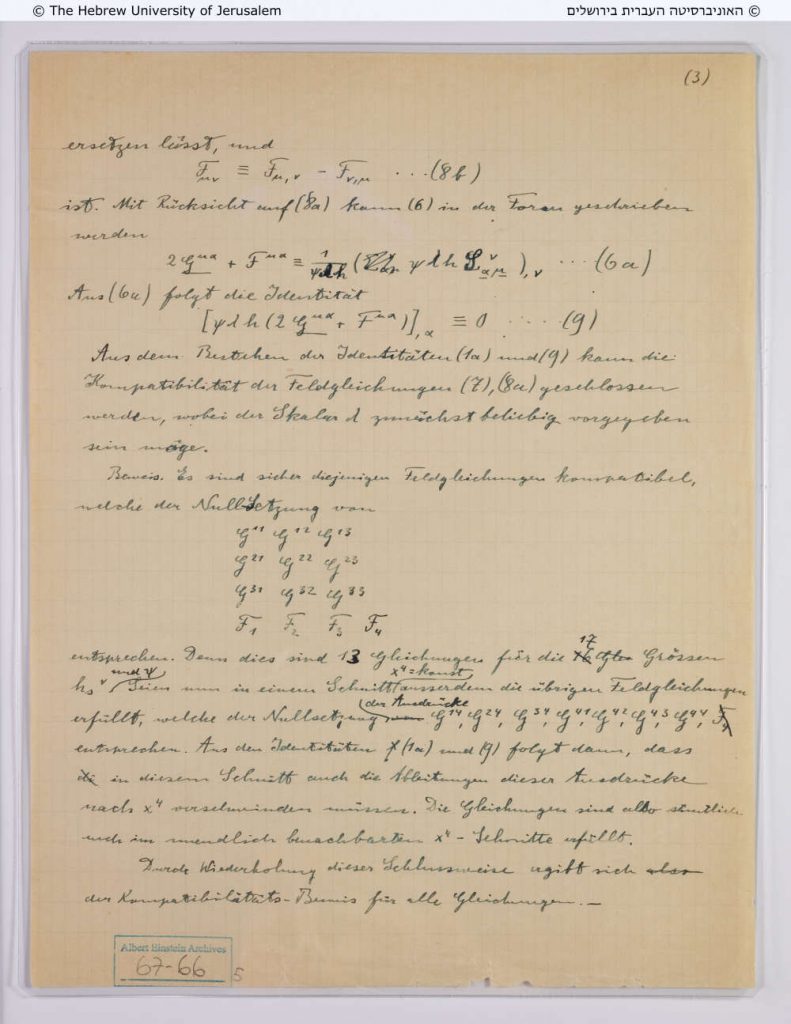 © The Hebrew University of Jerusalem
© האוניברסיטה העברית בירושלים
(3)
ersetzen lässt, und
F_{μν} ≡ F_{μ,ν} − F_{ν,μ} ...(8b)
ist. Mit Rücksicht auf (8a) kann (6) in der Form geschrieben
werden
2 G^{μα} + F^{μα} ≡ 1/ψλh ( ψ λ h S^ν_{αμ} ),ν ... (6a)
Aus (6a) folgt die Identität
[ψλh (2 G^{μα} + F^{μα})],α ≡ 0 .... (9)
Aus dem Bestehen der Identitäten (1a) und (9) kann die
Kompatibilität der Feldgleichungen (7), (8a) geschlossen
werden, wobei der Skalar λ zunächst beliebig vorgegeben
sein möge.
Beweis. Es sind sicher diejenigen Feldgleichungen kompatibel,
welche der Null-Setzung von
G^{11} G^{12} G^{13}
G^{21} G^{22} G^{23}
G^{31} G^{32} G^{33}
F_1 F_2 F_3 F_4
entsprechen. Denn dies sind 13 Gleichungen für die 17 Grössen
h_s^ν und ψ. Seien nun in einem Schnitt x^4 = konst ausserdem die übrigen Feldgleichungen
erfüllt, welche der Nullsetzung der Ausdrücke G^{14}, G^{24}, G^{34}, G^{41}, G^{42}, G^{43}, G^{44},
entsprechen. Aus den Identitäten (1a) und (9) folgt dann, dass
in diesem Schnitt auch die Ableitungen dieser Ausdrücke
nach x^4 verschwinden müssen. Die Gleichungen sind also sämtlich
auch im unendlich benachbarten x^4 - Schnitte erfüllt.
Durch Wiederholung dieser Schlussweise ergibt sich
der Kompatibilitäts-Beweis für alle Gleichungen. —
Albert Einstein Archives
67-66
5